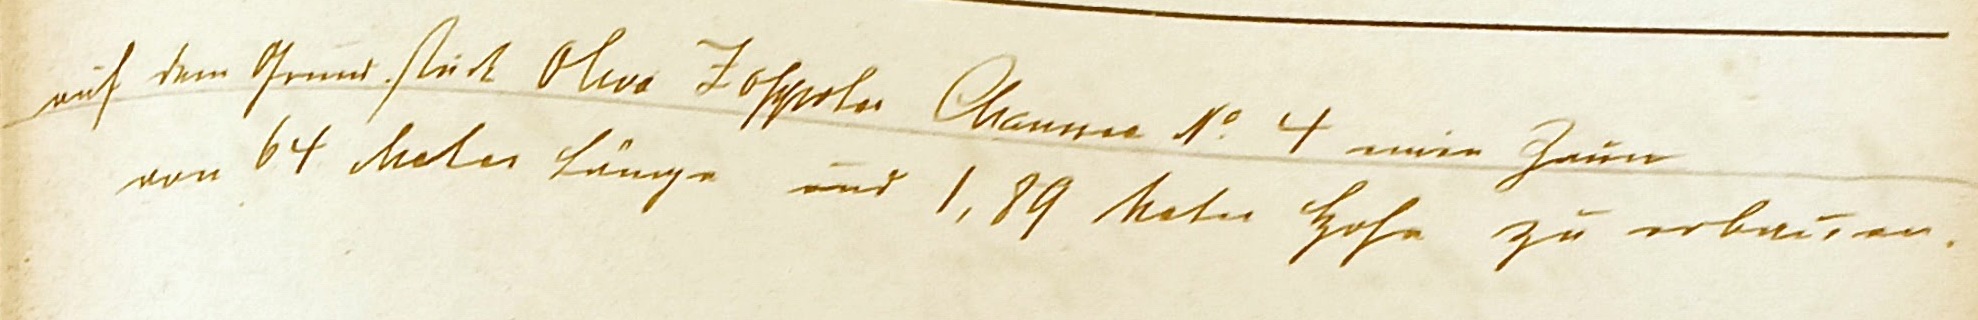 auf dem Grundstück Oliva Zoppoter Chaussee No. 4 einen Zaun
von 64 Meter Länge und 1,89 Meter Höhe zu erbauen.